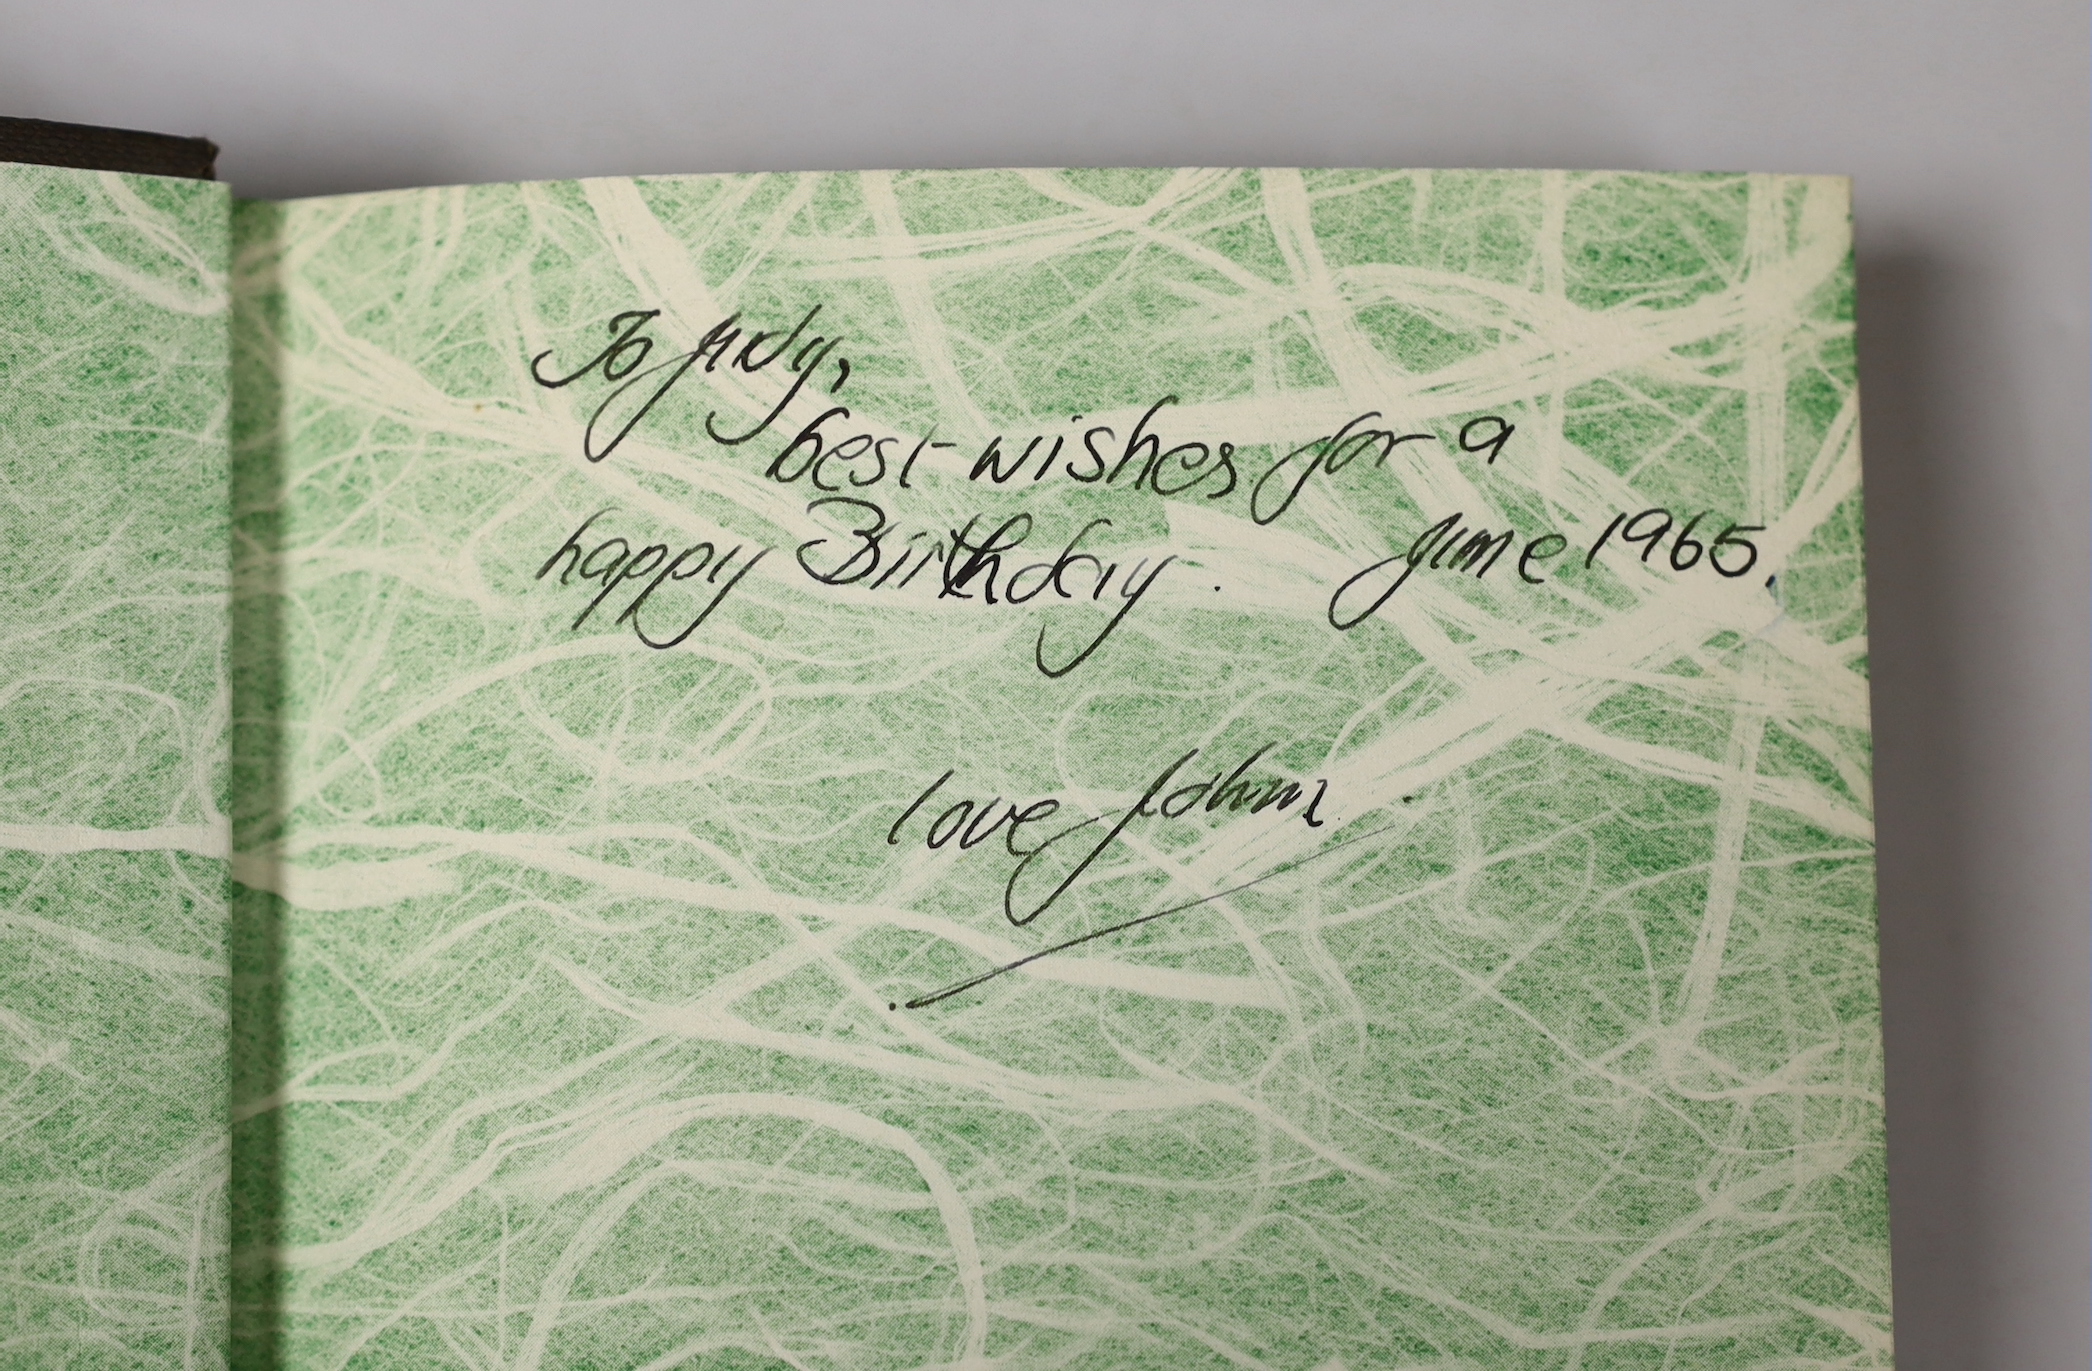 To Judy,
best wishes for a
happy Birthday. June 1965.
love John